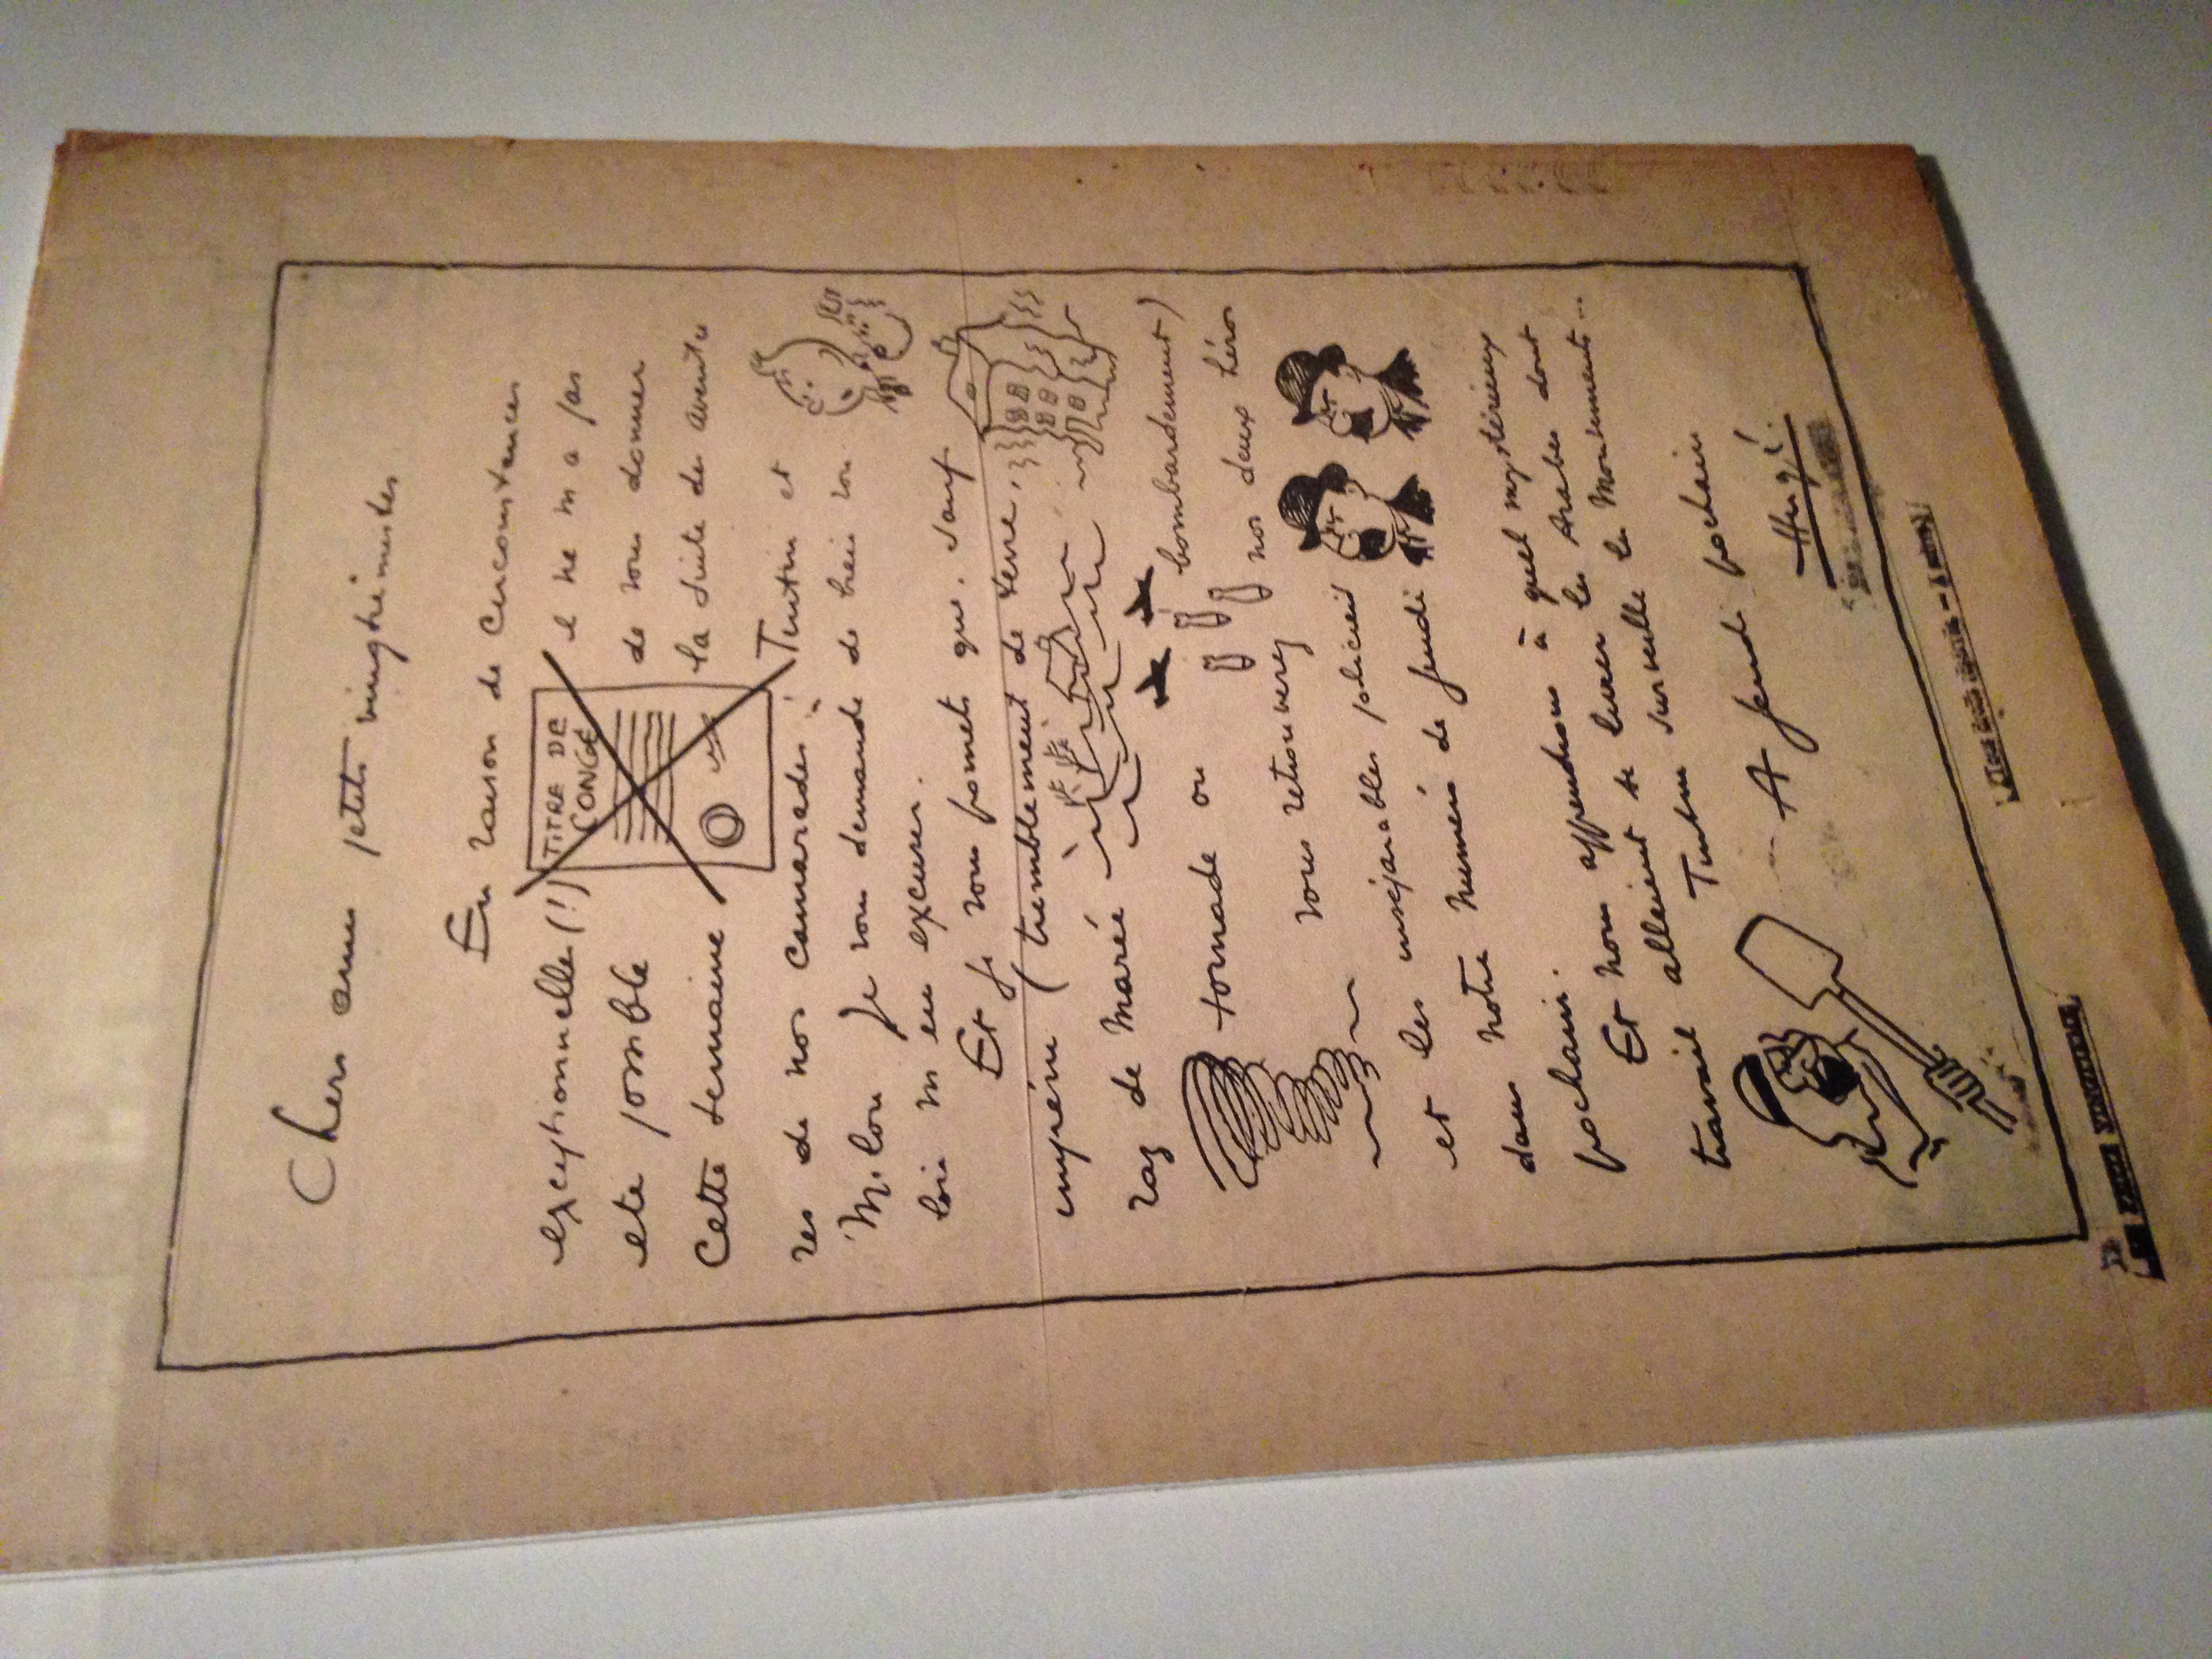 Chers amis petits vingtièmistes
En raison de circonstances
exceptionnelles (!) il ne m'a pas
TITRE DE
CONGÉ
été possible de vous donner
cette semaine la suite des aventu
res de nos camarades Tintin et
Milou. Je vous demande de bien vou
loir m'en excuser.
Et je vous promets que, sauf
imprévu (tremblement de terre,
raz de marée
tornade ou bombardement)
vous retrouverez nos deux héros
et les inséparables policiers
dans notre numéro de jeudi
prochain.
Et nous apprendrons à quel mystérieux
travail allaient se livrer les Arabes dont
Tintin surveille les mouvements...
A jeudi prochain
Hergé.
LE PETIT VINGTIEME